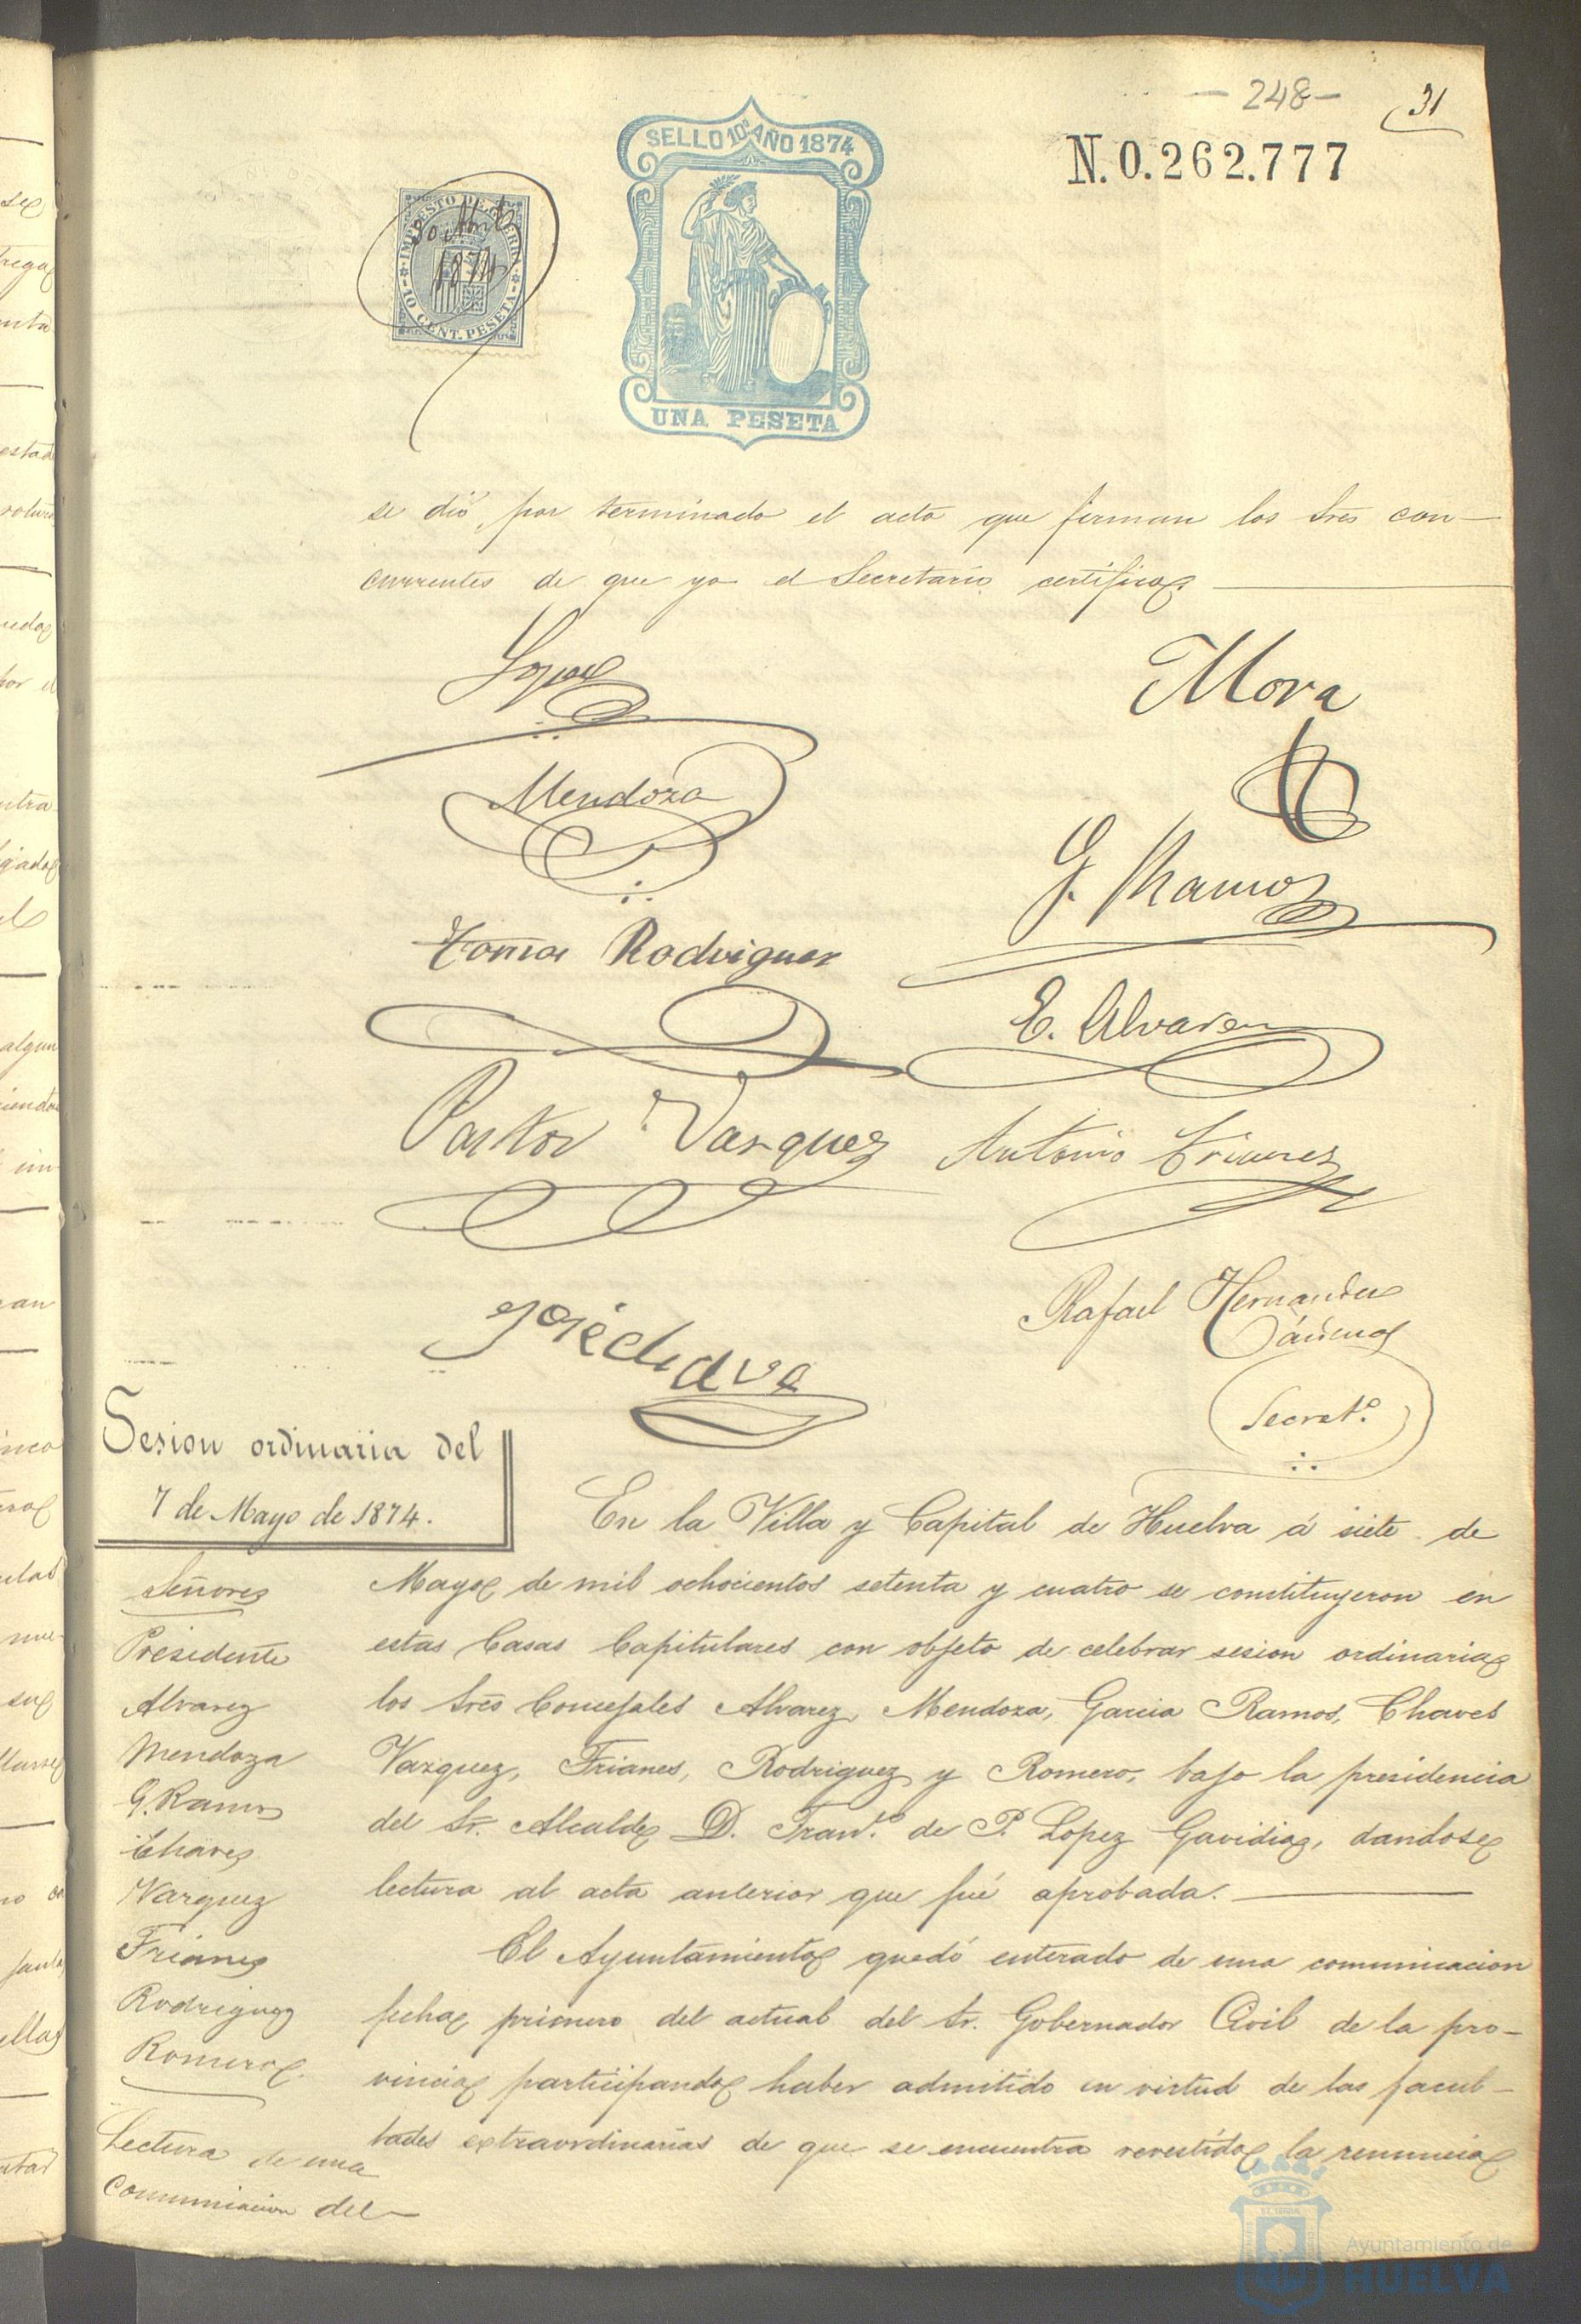 — 248 —
31
SELLO 10º AÑO 1874
N. 0.262.777
IMPUESTO DE GUERRA
1874
10 CENT. PESETA
UNA PESETA
se dió por terminado el acto que firman los Sres con-
currentes de que yo el Secretario certifico
Lopez
Mora
Mendoza
G. Ramos
Tomas Rodriguez
E. Alvarez
Pastor Vazquez
Antonio Trianes
Rafael Hernandez
José Chaves
Secret.º
Sesion ordinaria del
7 de Mayo de 1874.
En la Villa y Capital de Huelva á siete de
Señores
Mayo de mil ochocientos setenta y cuatro se constituyeron en
Presidente
estas Casas Capitulares con objeto de celebrar sesion ordinaria
Alvarez
los Sres Concejales Alvarez, Mendoza, Garcia Ramos, Chaves
Mendoza
Vazquez, Trianes, Rodriguez y Romero, bajo la presidencia
G. Ramos
del Sr. Alcalde D. Fran.º de P. Lopez Gavidia, dandose
Chaves
lectura al acta anterior que fué aprobada.
Vazquez
El Ayuntamiento quedó enterado de una comunicacion
Trianes
fecha primero del actual del Sr. Gobernador Civil de la pro-
Rodriguez
vincia participando haber admitido en virtud de las facul-
Romero.
tades extraordinarias de que se encuentra revestido la renuncia
Lectura de una
comunicacion del
Ayuntamiento de
HUELVA